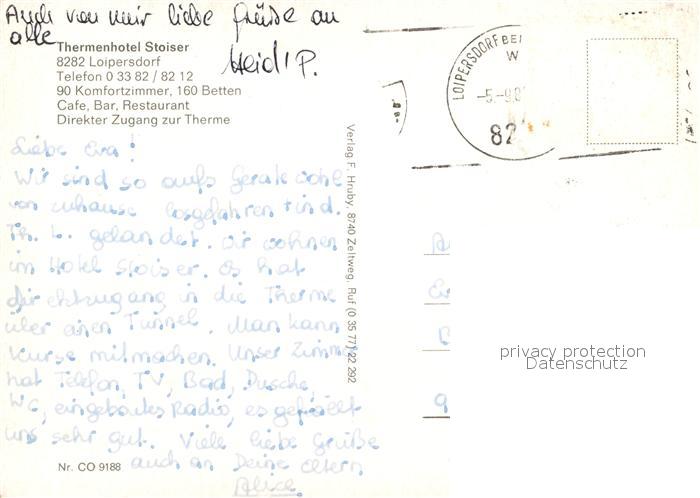 Auch von mir liebe Grüße an
alle
Heidi P.
Thermenhotel Stoiser
8282 Loipersdorf
Telefon 0 33 82 / 82 12
90 Komfortzimmer, 160 Betten
Cafe, Bar, Restaurant
Direkter Zugang zur Therme
LOIPERSDORF BEI
-5.-9.8
82
Liebe Eva!
Wir sind so aufs Geratewohl
von zuhause losgefahren und
Th. L. gelandet. Wir wohnen
im Hotel Stoiser. Es hat
direktzugang in die Therme
über einen Tunnel. Man kann
Kurse mitmachen. Unser Zimm
hat Telefon, TV, Bad, Dusche,
WC, eingebautes Radio, es gefällt
uns sehr gut. Viele liebe Grüße
auch an Deine Eltern
Alice
Nr. CO 9188
Verlag F. Hruby, 8740 Zeltweg, Ruf (0 35 77) 22 292
privacy protection
Datenschutz